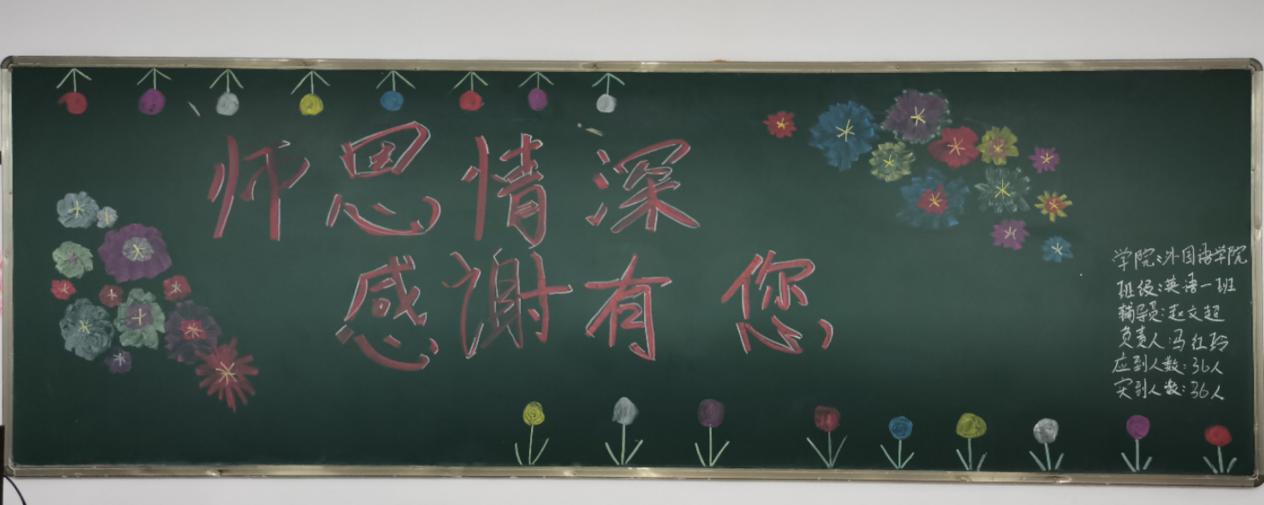 师恩情深
感谢有您
学院:外国语学院
班级:英语一班
辅导员:赵文超
负责人:冯红玲
应到人数:36人
实到人数:36人